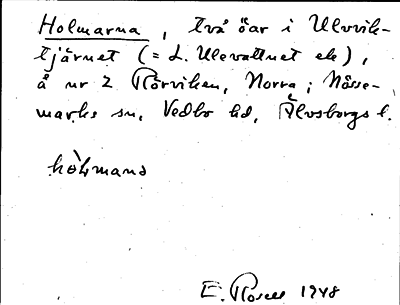 Holmarna, två öar i Ulvvik-
tjärnet (= L. Ulevattnet ek),
å nr 2 Rörviken, Norra; Nösse-
marks sn, Vedbo hd, Älvsborgs l.
hòlmana
E. Rosell 1948